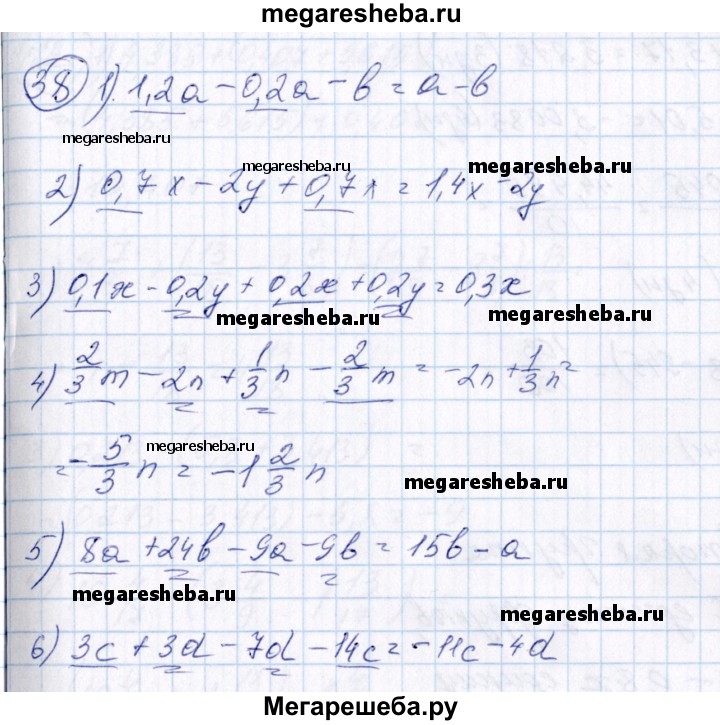 megaresheba.ru
38 1) 1,2a - 0,2a - b = a - b
megaresheba.ru
megaresheba.ru
2) 0,7x - 2y + 0,7x = 1,4x - 2y
3) 0,1x - 0,2y + 0,2x + 0,2y = 0,3x
megaresheba.ru
megaresheba.ru
4) 2/3 m - 2n + 1/3 n - 2/3 m = -2n + 1/3 n =
megaresheba.ru
= -5/3 n = -1 2/3 n
megaresheba.ru
5) 8a + 24b - 9a - 9b = 15b - a
megaresheba.ru
megaresheba.ru
6) 3c + 3d - 7d - 14c = -11c - 4d
Мегарешеба.ру